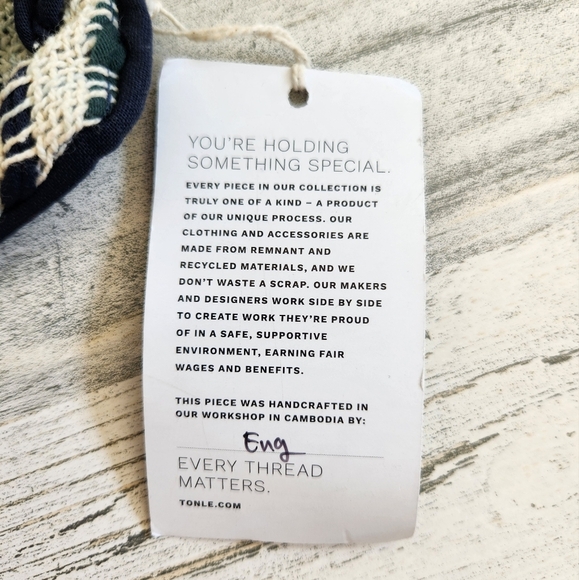 YOU'RE HOLDING
SOMETHING SPECIAL.
EVERY PIECE IN OUR COLLECTION IS
TRULY ONE OF A KIND – A PRODUCT
OF OUR UNIQUE PROCESS. OUR
CLOTHING AND ACCESSORIES ARE
MADE FROM REMNANT AND
RECYCLED MATERIALS, AND WE
DON'T WASTE A SCRAP. OUR MAKERS
AND DESIGNERS WORK SIDE BY SIDE
TO CREATE WORK THEY'RE PROUD
OF IN A SAFE, SUPPORTIVE
ENVIRONMENT, EARNING FAIR
WAGES AND BENEFITS.
THIS PIECE WAS HANDCRAFTED IN
OUR WORKSHOP IN CAMBODIA BY:
Eng
EVERY THREAD
MATTERS.
TONLE.COM